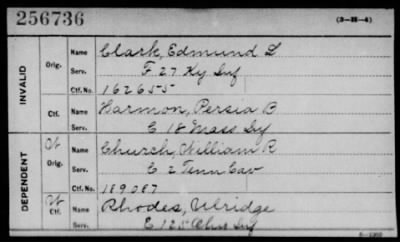 256736 (3-H-4)
INVALID
Orig. Name Clark, Edmund L
Serv. F 27 Ky Inf
Ctf. No. 162655
Ctf. Name Harmon, Persia B
Serv. E 18 Mass Inf
DEPENDENT
Wt Orig. Name Church, William R
Serv. E 2 Tenn Cav
Ctf. No. 189087
Wt Ctf. Name Rhodes, Ulridge
Serv. E 125 Ohio Inf